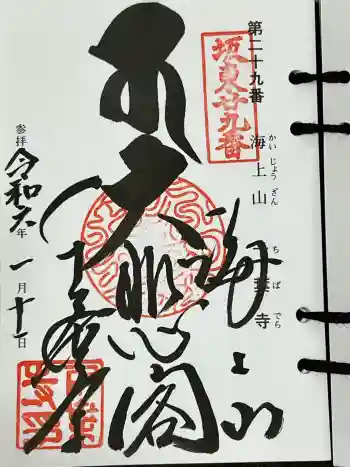 第二十九番
坂東廿九番
海上山
かいじょうざん
千葉寺
ちばでら
海上山
大悲閣
千葉寺
参拝
令和六年一月十一日